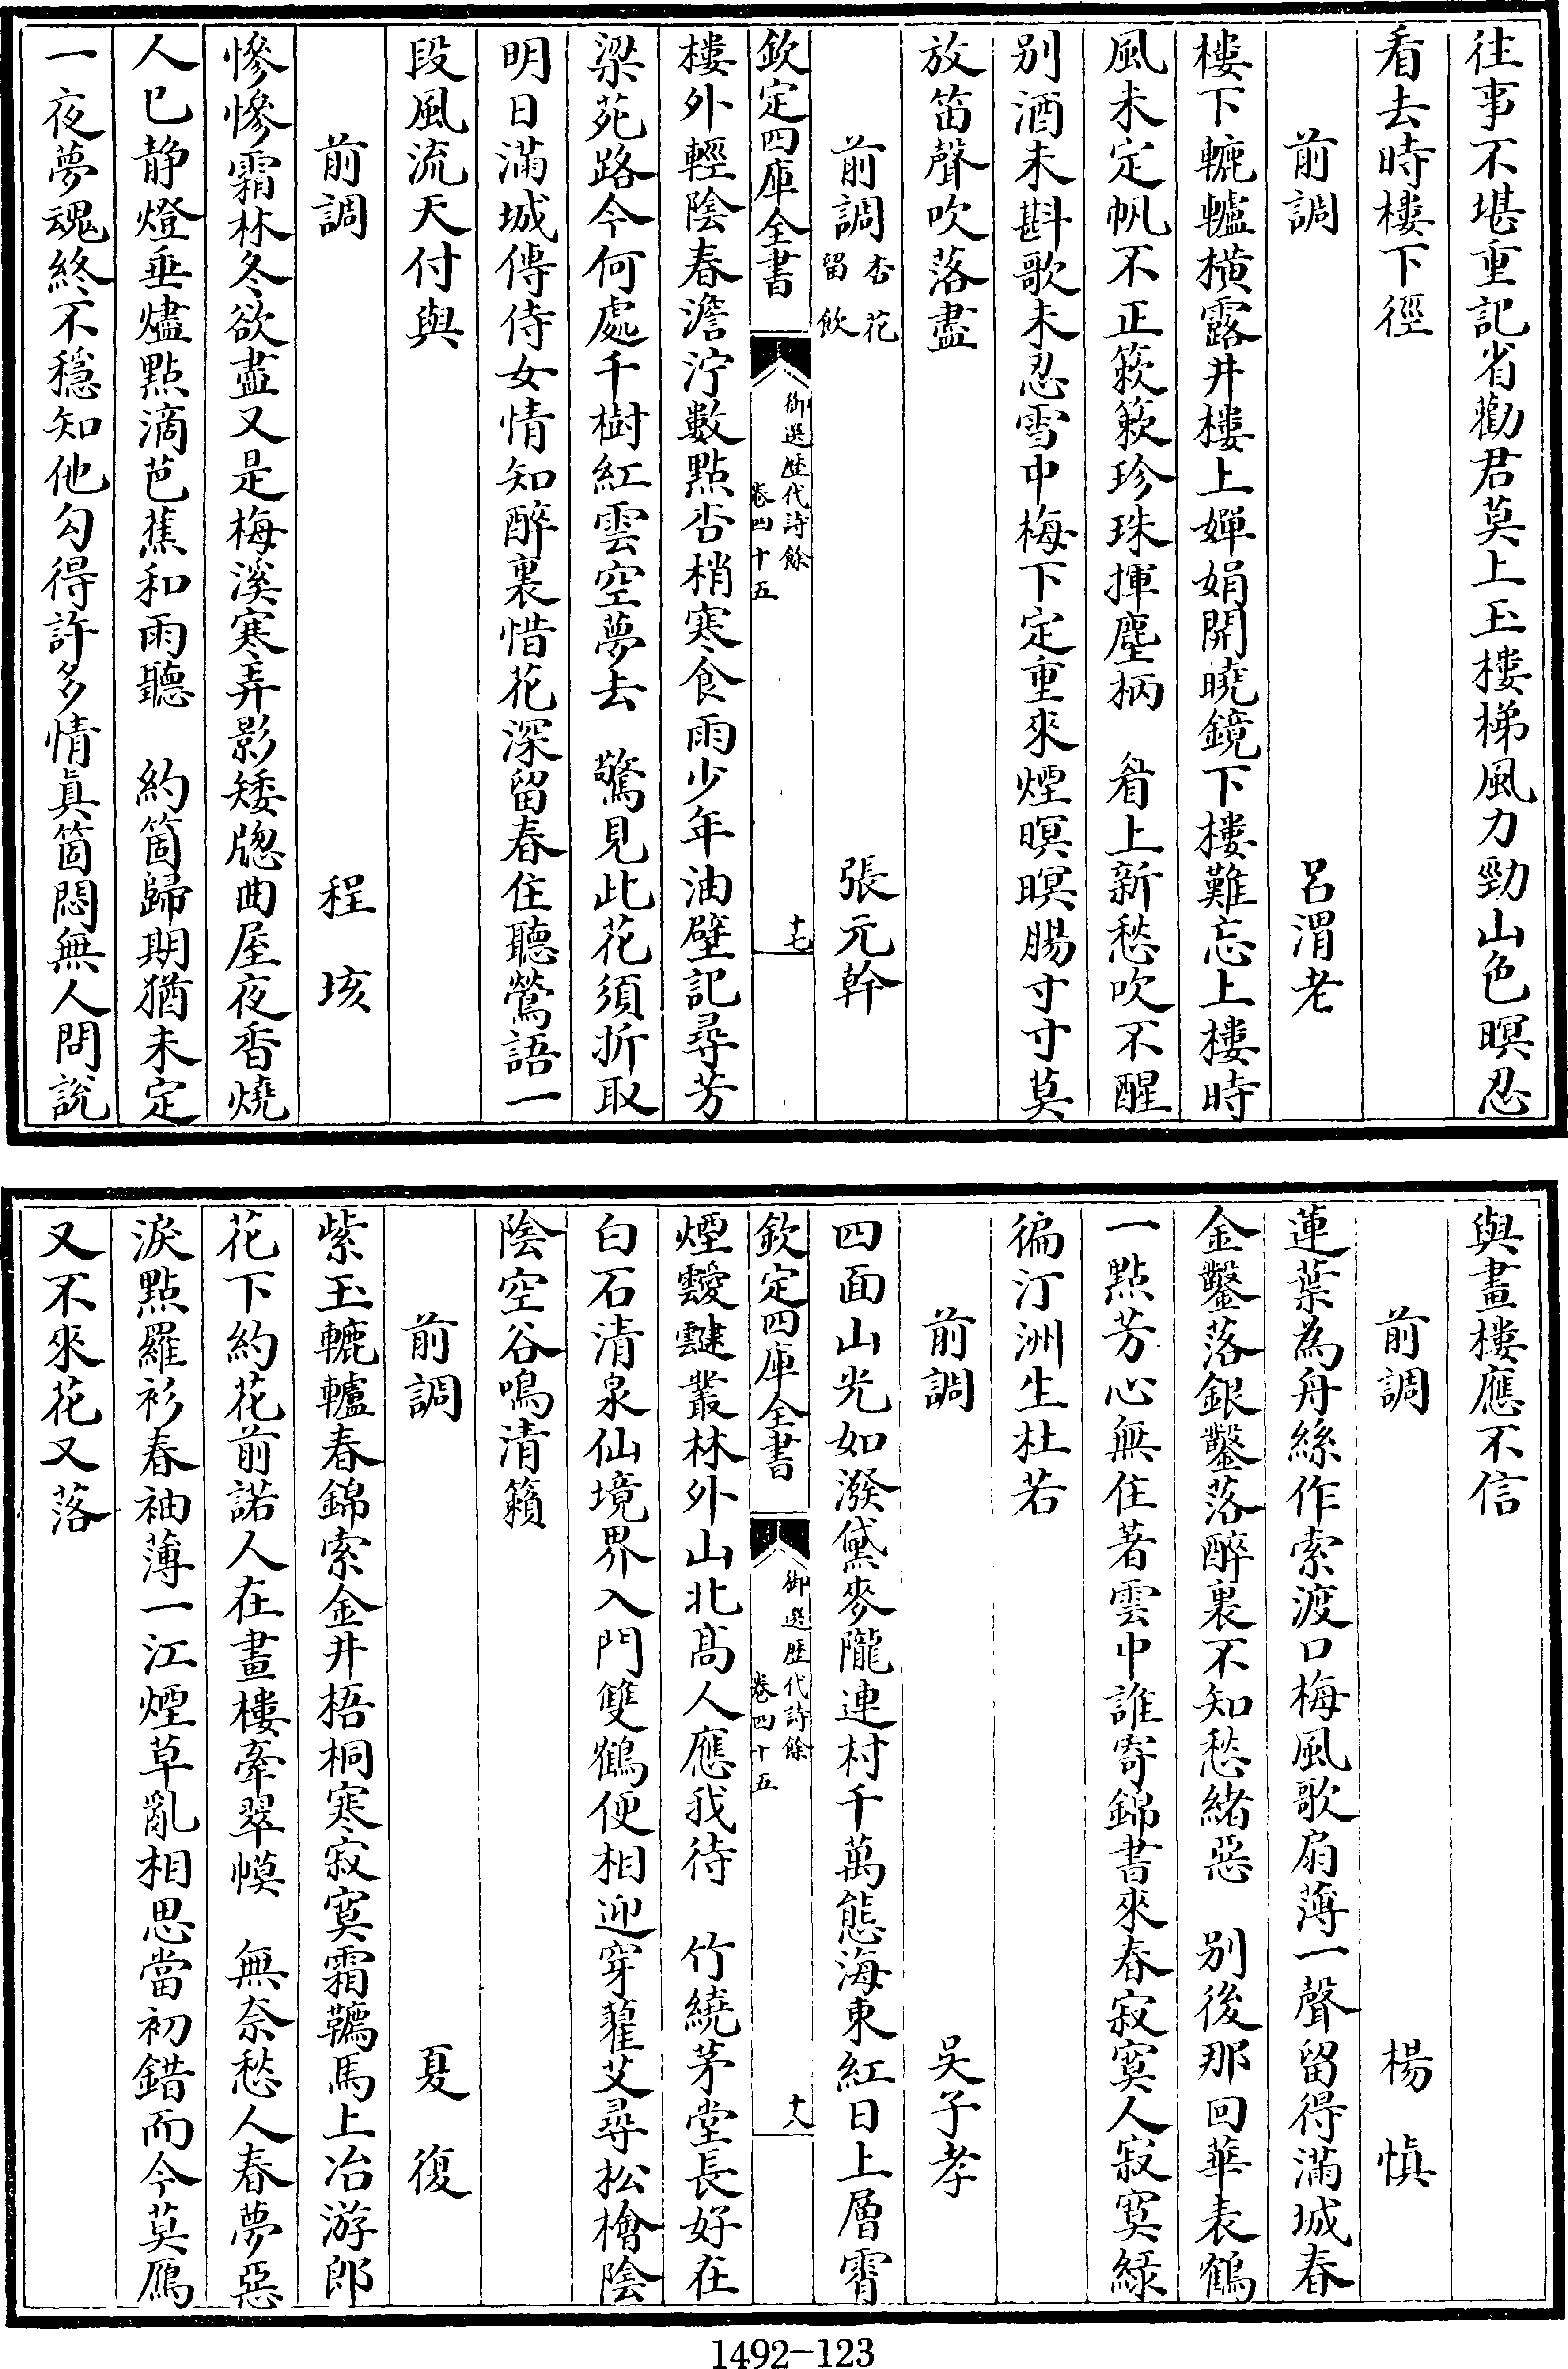 往事不堪重記省勸君莫上玉樓梯風力勁山色暝忍
看去時樓下徑
前調　呂渭老
樓下轆轤橫露井樓上嬋娟開曉鏡下樓難忘上樓時
風未定帆不正簌簌珍珠揮麈柄　看上新愁吹不醒
别酒未斟歌未忍雪中梅下定重來煙暝暝腸寸寸莫
放笛聲吹落盡
前調杏花留飲　張元幹
欽定四庫全書　御選歷代詩餘卷四十五　十七
樓外輕陰春澹泞數點杏梢寒食雨少年油壁記尋芳
梁苑路今何處千樹紅雲空夢去　驚見此花須折取
明日滿城傳侍女情知醉裏惜花深留春住聽鶯語一
段風流天付與
前調　程垓
慘慘霜林冬欲盡又是梅溪寒弄影矮牕曲屋夜香燒
人已静燈垂燼點滴芭蕉和雨聽　約箇歸期猶未定
一夜夢魂終不穩知他勾得許多情真箇悶無人問說
與畫樓應不信
前調　楊慎
蓮葉為舟絲作索渡口梅風歌扇薄一聲留得滿城春
金鑿落銀鑿落醉裏不知愁緒惡　别後那回華表鶴
一點芳心無住著雲中誰寄錦書來春寂寞人寂寞綠
徧汀洲生杜若
前調　吳子孝
四面山光如潑黛麥隴連村千萬態海東紅日上層霄
欽定四庫全書　御選歷代詩餘卷四十五　十八
煙靉靆叢林外山北髙人應我待　竹繞茅堂長好在
白石清泉仙境界入門雙鶴便相迎穿蘿艾尋松檜陰
陰空谷鳴清籟
前調　夏復
紫玉轆轤春錦索金井梧桐寒寂寞霜韉馬上冶游郎
花下約花前諾人在畫樓牽翠幙　無奈愁人春夢惡
淚點羅衫春袖薄一江煙草亂相思當初錯而今莫鴈
又不來花又落
1492-123